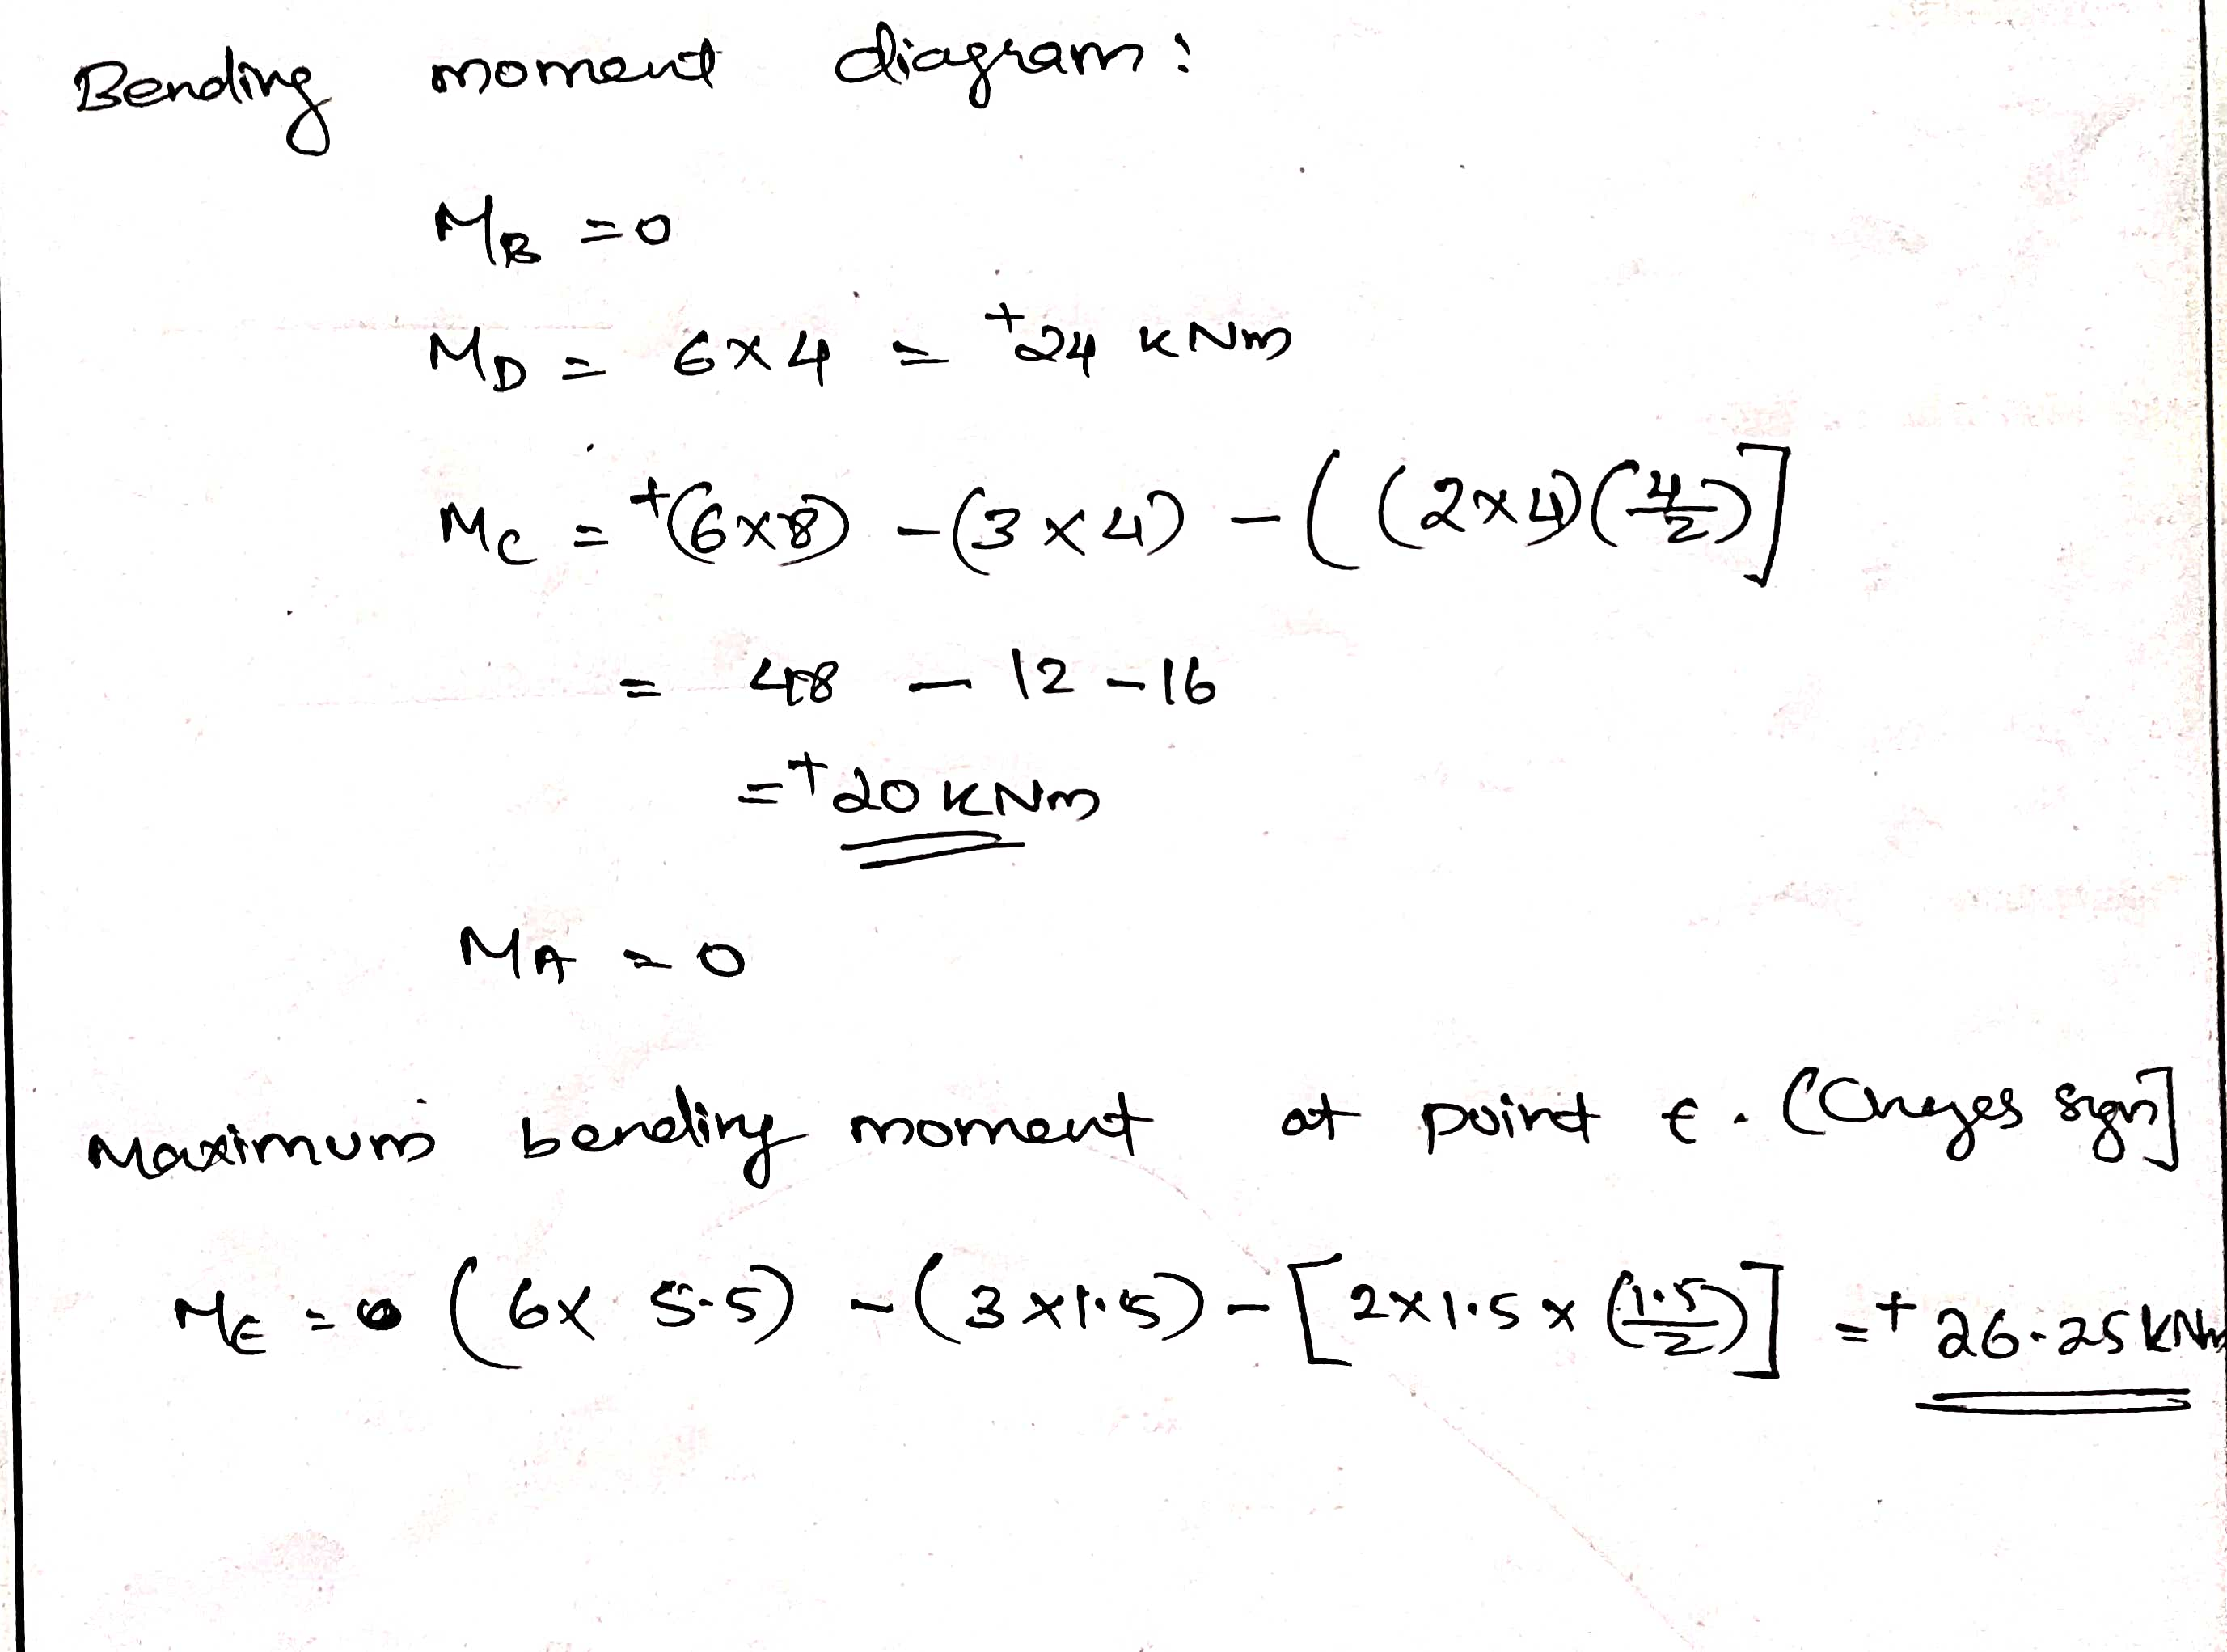 Bending moment diagram:
MB = 0
MD = 6×4 = +24 KNm
Mc = +(6×8) - (3×4) - ( (2×4)(4/2)]
= 48 - 12 - 16
= +20 KNm
MA = 0
Maximum bending moment at point E. (Changes sign]
ME = (6× 5.5) - (3×1.5) - [2×1.5×(1.5/2)] = +26.25 KNm